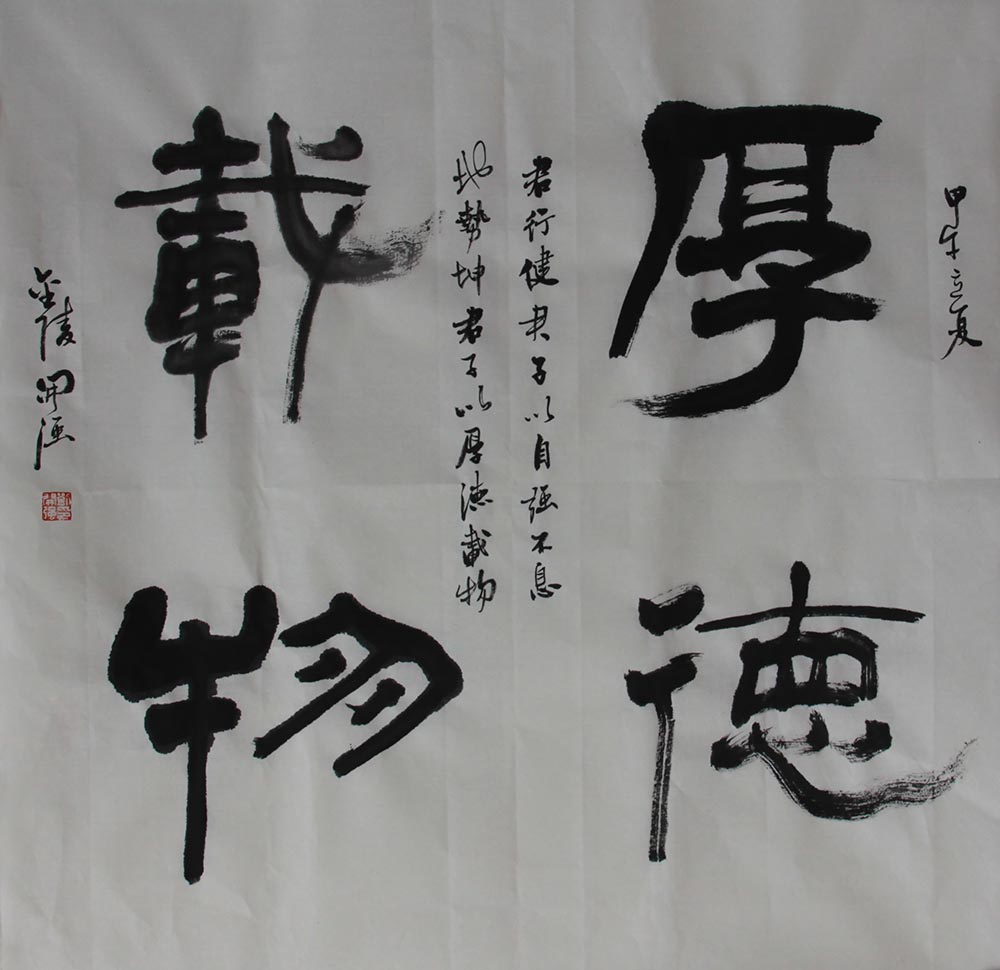 甲午立夏
厚德
君行健君子以自强不息
地势坤君子以厚德载物
載物
金陵開強